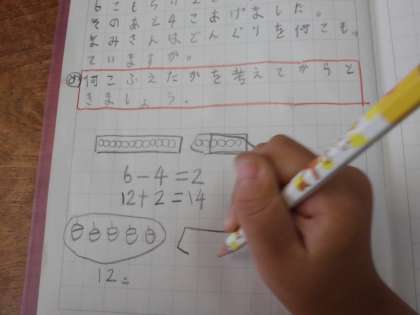 6こもらい
そのあと4こあげました。
まみさんはどんぐりを何こも
ていますか。
め 何こふえたかを考えてからと
きましょう。
6-4=2
12+2=14
12=